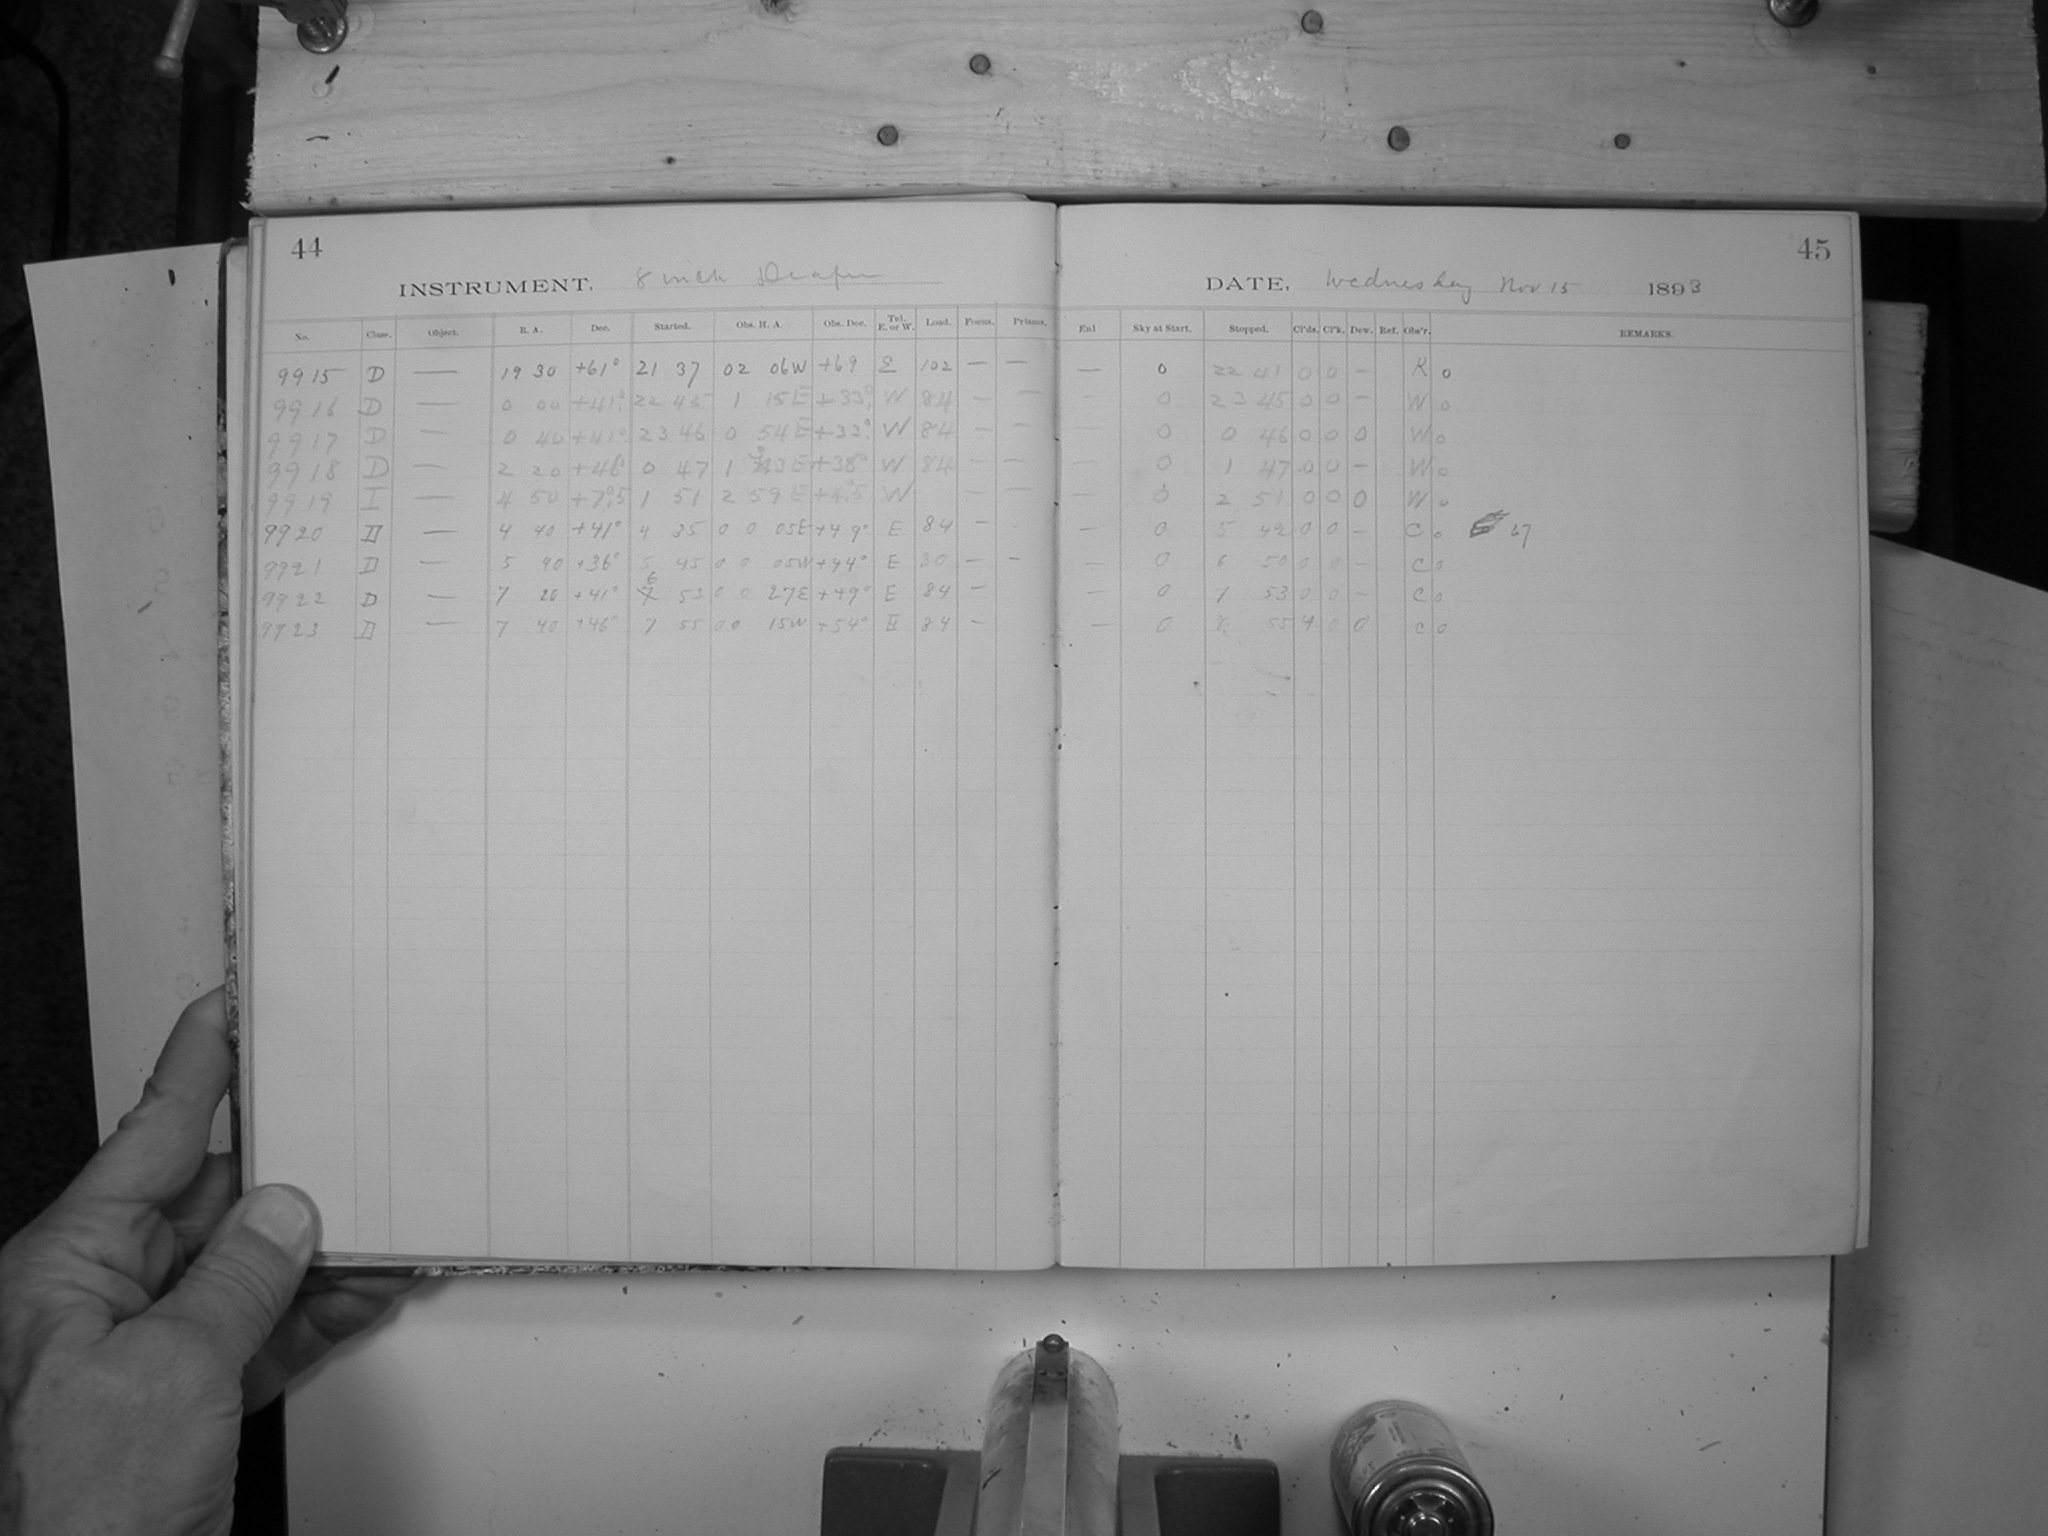 44
INSTRUMENT. 8 inch Draper
No. Class. Object. R. A. Dec. Started. Obs. H. A. Obs. Dec. Tel. E. or W. Load. Focus. Prisms.
9915 D — 19 30 +61° 21 37 02 06W +69 E 102 — —
9916 D — 0 00 +41° 22 45 1 15E +33° W 84 — —
9917 D — 0 40 +41° 23 46 0 54E +33° W 84 — —
9918 D — 2 20 +46° 0 47 1 43E +38° W 84 — —
9919 I — 4 50 +7°.5 1 51 2 59E W — —
9920 D — 4 40 +41° 4 35 0 0 05E +49° E 84 —
9921 D — 5 40 +36° 5 45 0 0 05W +44° E 80 — —
9922 D — 7 20 +41° 6 53 0 0 27E +49° E 84 —
9923 D — 7 40 +46° 7 55 0 0 15W +54° E 84 —
45
DATE, Wednesday Nov 15 1893
Enl Sky at Start. Stopped. Cl'ds. Cl'k. Dew. Ref. Obs'r. REMARKS.
— 0 22 41 0 0 — K o
— 0 23 45 0 0 — W o
— 0 0 46 0 0 0 W o
— 0 1 47 0 0 — W o
— 0 2 51 0 0 0 W o
— 0 5 42 0 0 — C o 67
— 0 6 50 0 0 — C o
— 0 7 53 0 0 — C o
— 0 8 55 4 0 0 C o